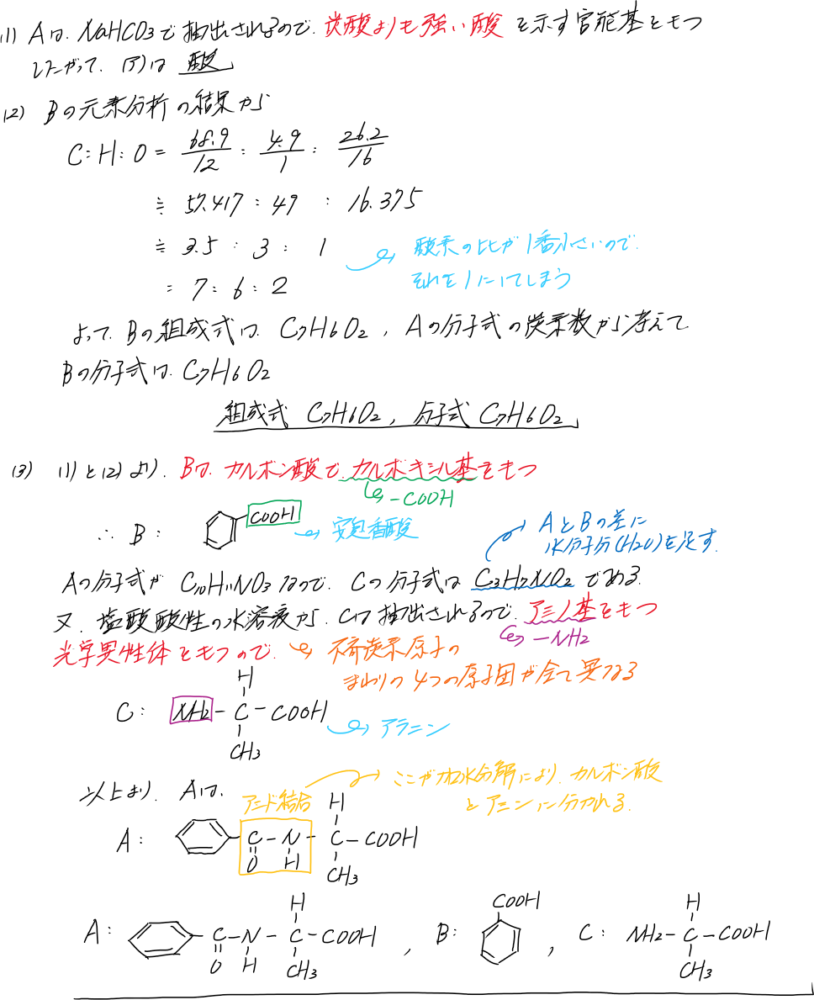 (1) Aは、NaHCO3で抽出されるので、炭酸よりも強い酸を示す官能基をもつ
したがって、(ア)は 酸
(2) Bの元素分析の結果から
C:H:O = 68.9/12 : 4.9/1 : 26.2/16
≒ 57.417 : 49 : 16.375
≒ 3.5 : 3 : 1
酸素の比が1番小さいので、
それを1にしてしまう
= 7:6:2
よって、Bの組成式は、C7H6O2、Aの分子式の炭素数から考えて
Bの分子式は、C7H6O2
組成式 C7H6O2, 分子式 C7H6O2
(3) (1)と(2)より、Bは、カルボン酸で、カルボキシル基をもつ
-COOH
∴ B: COOH
安息香酸
AとBの差に
水分子分(H2O)を足す
Aの分子式が C10H11NO3なので、Cの分子式は C3H7NO2 である
又、塩酸酸性の水溶液から、Cは抽出されるので、アミノ基をもつ
-NH2
光学異性体をもつので、
不斉炭素原子の
まわりの4つの原子団が全て異なる
H
C: NH2-C-COOH
CH3
アラニン
以上より、Aは、
アミド結合
ここが加水分解により、カルボン酸
とアミンに分かれる
H
A: C-N-C-COOH
O H CH3
H COOH H
A: C-N-C-COOH , B: , C: NH2-C-COOH
O H CH3 CH3